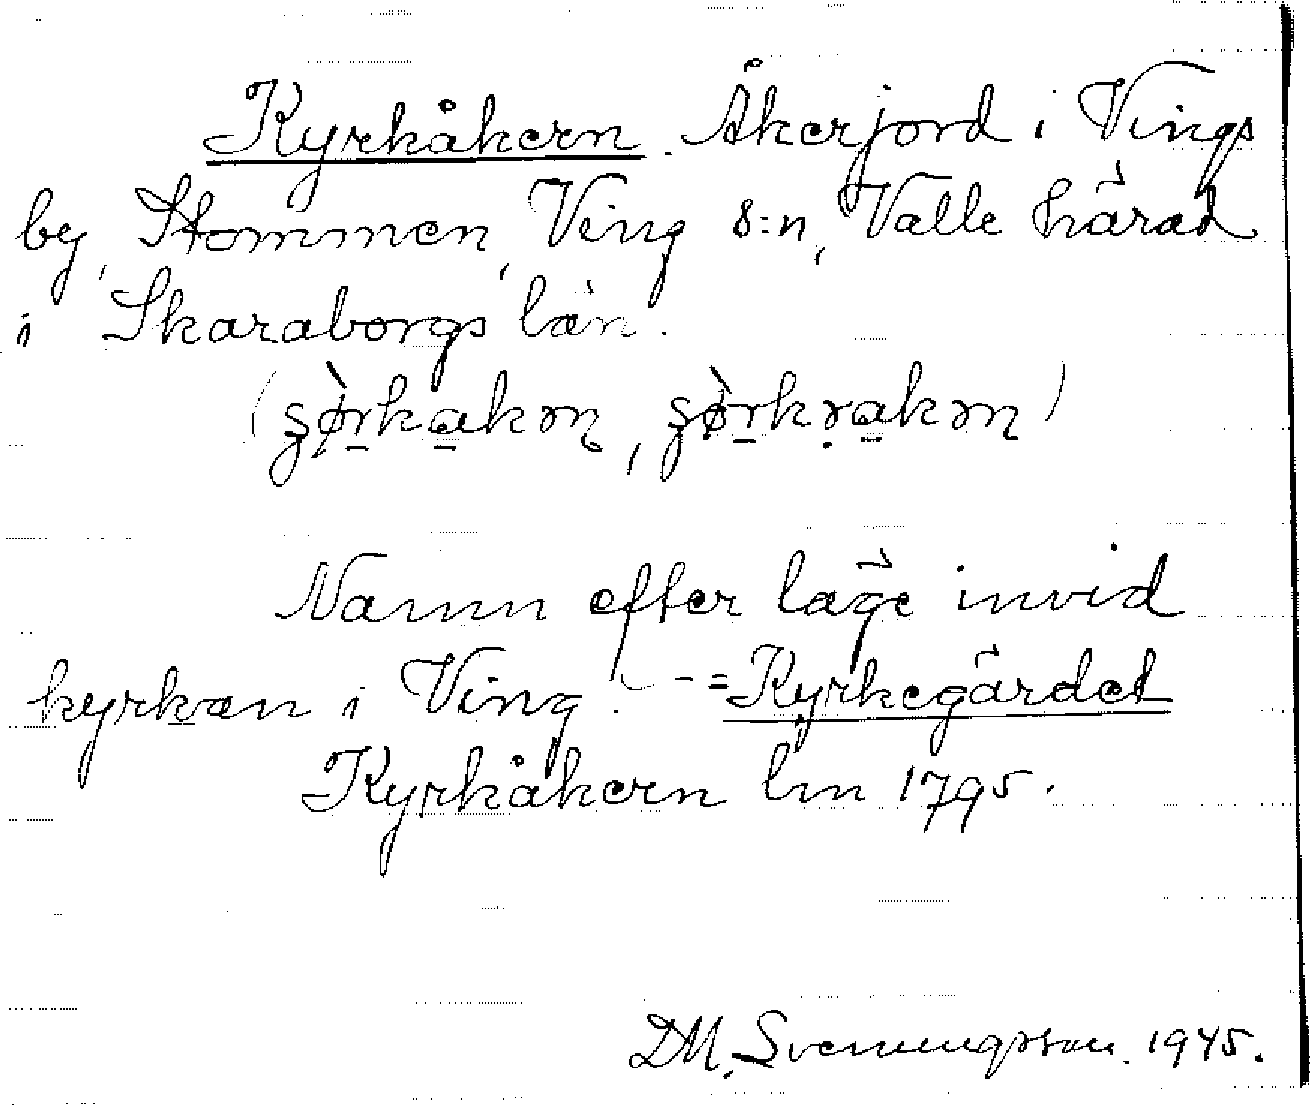 Kyrkåkern. Åkerjord i Vings
by, Stommen, Ving s:n, Valle härad
i Skaraborgs län.
Namn efter läge invid
kyrkan i Ving. - = Kyrkegärdet
Kyrkåkern lm 1795.
DM. Svenningsson. 1945.